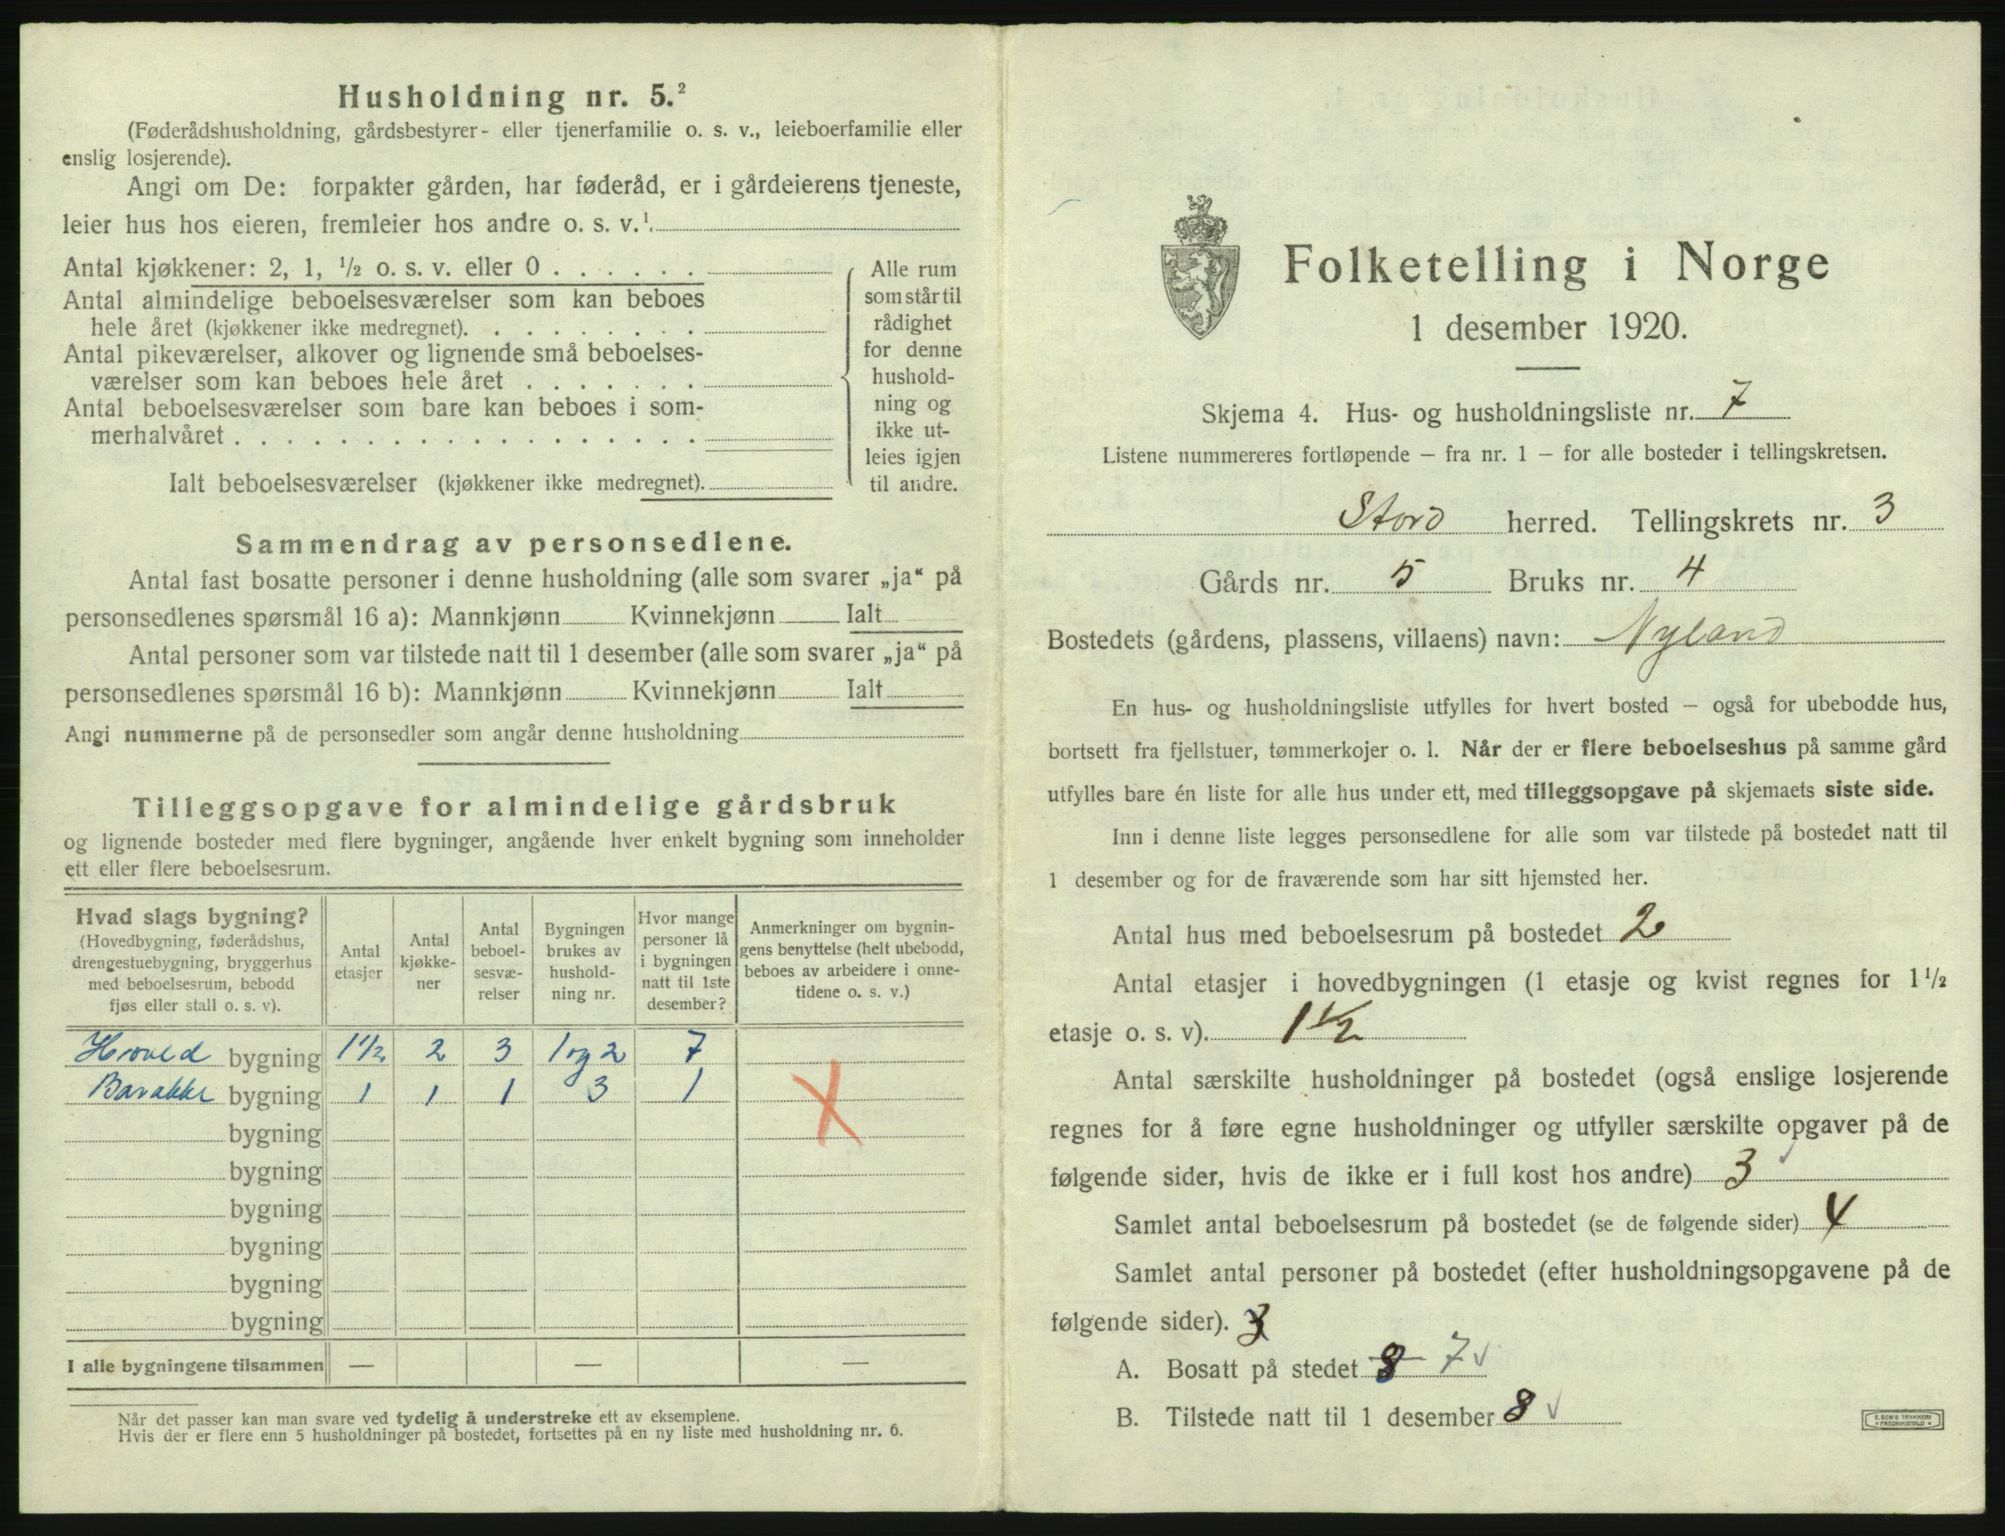 Husholdning nr. 5.²
(Føderådshusholdning, gårdsbestyrer- eller tjenerfamilie o. s. v., leieboerfamilie eller
enslig losjerende).
Angi om De: forpakter gården, har føderåd, er i gårdeierens tjeneste,
leier hus hos eieren, fremleier hos andre o. s. v.¹.
Antal kjøkkener: 2, 1, ½ o. s. v. eller 0 . . . . . .
Antal almindelige beboelsesværelser som kan beboes
hele året (kjøkkener ikke medregnet). . . . . . . . .
Antal pikeværelser, alkover og lignende små beboelses-
værelser som kan beboes hele året . . . . . . .
Antal beboelsesværelser som bare kan beboes i som-
merhalvåret . . . . . . . . . . . . . . . . . .
Ialt beboelsesværelser (kjøkkener ikke medregnet).
Alle rum
som står til
rådighet
for denne
hushold-
ning og
ikke ut-
leies igjen
til andre.
Sammendrag av personsedlene.
Antal fast bosatte personer i denne husholdning (alle som svarer „ja“ på
personsedlenes spørsmål 16 a): Mannkjønn Kvinnekjønn Ialt
Antal personer som var tilstede natt til 1 desember (alle som svarer „ja“ på
personsedlenes spørsmål 16 b): Mannkjønn Kvinnekjønn Ialt
Angi nummerne på de personsedler som angår denne husholdning
Tilleggsopgave for almindelige gårdsbruk
og lignende bosteder med flere bygninger, angående hver enkelt bygning som inneholder
ett eller flere beboelsesrum.
Hvad slags bygning?
(Hovedbygning, føderådshus,
drengestuebygning, bryggerhus
med beboelsesrum, bebodd
fjøs eller stall o. s. v).
Antal
etasjer
Antal
kjøkke-
ner
Antal
beboel-
sesvæ-
relser
Bygningen
brukes av
hushold-
ning nr.
Hvor mange
personer lå
i bygningen
natt til 1ste
desember?
Anmerkninger om bygnin-
gens benyttelse (helt ubebodd,
beboes av arbeidere i onne-
tidene o. s. v.)
Hoved bygning 1½ 2 3 1 og 2 7
Barakke bygning 1 1 1 3 1 X
bygning
bygning
bygning
bygning
bygning
bygning
I alle bygningene tilsammen — — —
Når det passer kan man svare ved tydelig å understreke ett av eksemplene.
Hvis der er flere enn 5 husholdninger på bostedet, fortsettes på en ny liste med husholdning nr. 6.
Folketelling i Norge
1 desember 1920.
Skjema 4. Hus- og husholdningsliste nr. 7
Listene nummereres fortløpende – fra nr. 1 – for alle bosteder i tellingskretsen.
Stord herred. Tellingskrets nr. 3
Gårds nr. 5 Bruks nr. 4
Bostedets (gårdens, plassens, villaens) navn: Nyland
En hus- og husholdningsliste utfylles for hvert bosted – også for ubebodde hus,
bortsett fra fjellstuer, tømmerkojer o. l. Når der er flere beboelseshus på samme gård
utfylles bare én liste for alle hus under ett, med tilleggsopgave på skjemaets siste side.
Inn i denne liste legges personsedlene for alle som var tilstede på bostedet natt til
1 desember og for de fraværende som har sitt hjemsted her.
Antal hus med beboelsesrum på bostedet 2
Antal etasjer i hovedbygningen (1 etasje og kvist regnes for 1½
etasje o. s. v). 1½
Antal særskilte husholdninger på bostedet (også enslige losjerende
regnes for å føre egne husholdninger og utfyller særskilte opgaver på de
følgende sider, hvis de ikke er i full kost hos andre) 3
Samlet antal beboelsesrum på bostedet (se de følgende sider) 4
Samlet antal personer på bostedet (efter husholdningsopgavene på de
følgende sider). 3
A. Bosatt på stedet 8 7
B. Tilstede natt til 1 desember 8
E. SEM'S TRYKKERI
FREDRIKSHALD